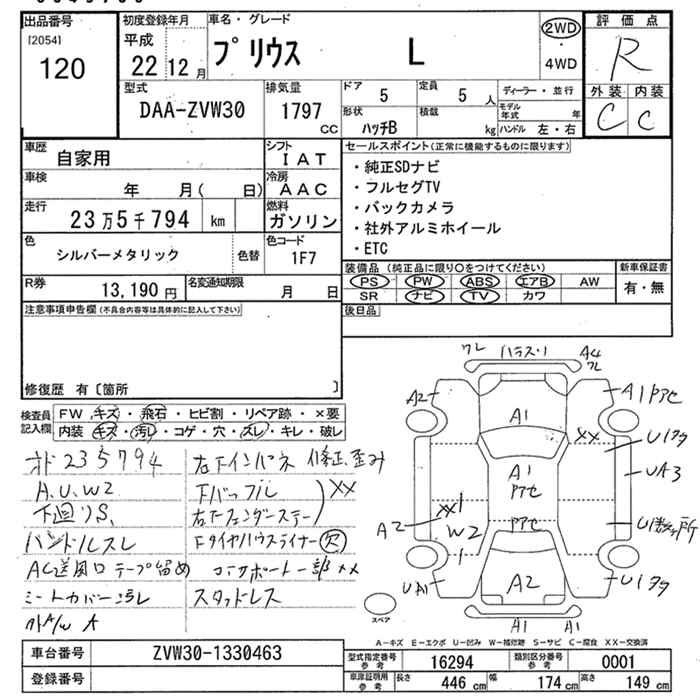 出品番号
[2054]
120
初度登録年月
平成
22 12 月
車名・グレード
プリウス L
2WD
・
4WD
評価点
R
外装 内装
C C
型式
DAA-ZVW30
排気量
1797
CC
ドア
5
定員
5 人
ディーラー・並行
形状
ハッチB
積載
kg
モデル年式 年
ハンドル 左・右
車歴
自家用
シフト
IAT
車検
年 月( 日)
冷房
AAC
走行
23万5千794 km
燃料
ガソリン
色
シルバーメタリック
色替
色コード
1F7
R券
13,190 円
名変通知期限
月 日
セールスポイント(正常に機能するものに限ります)
・純正SDナビ
・フルセグTV
・バックカメラ
・社外アルミホイール
・ETC
装備品(純正品に限り○をつけてください)
新車保証書
PS PW ABS エアB AW
SR ナビ TV カワ
有・無
後日品
注意事項申告欄(不具合内容等は具体的に記入して下さい)
修復歴 有〔箇所 〕
検査員記入欄
FW キズ・飛石・ヒビ割・リペア跡・×要
内装 キズ・汚レ・コゲ・穴・スレ・キレ・破レ
オド235794
A.U.W2
下廻りS.
ハンドルスレ
AC送風口テープ留め
シートカバー汚レ
右下インパネ 修正歪み
XX
FタイヤハウスライナーOK欠
スタッドレス
ワレ
A4
ワレ
A2
A1
A1
A1
XX
U1
UA3
XX1
W2
A2
UA1
A2
U1
A1
A1
スペア
A-キズ E-エクボ U-凹み W-補修跡 S-サビ C-腐食 XX-交換済
車台番号
ZVW30-1330463
登録番号
型式指定番号
参考
16294
類別区分番号
参考
0001
車庫証明用
参考
長さ 446 cm
幅 174 cm
高さ 149 cm